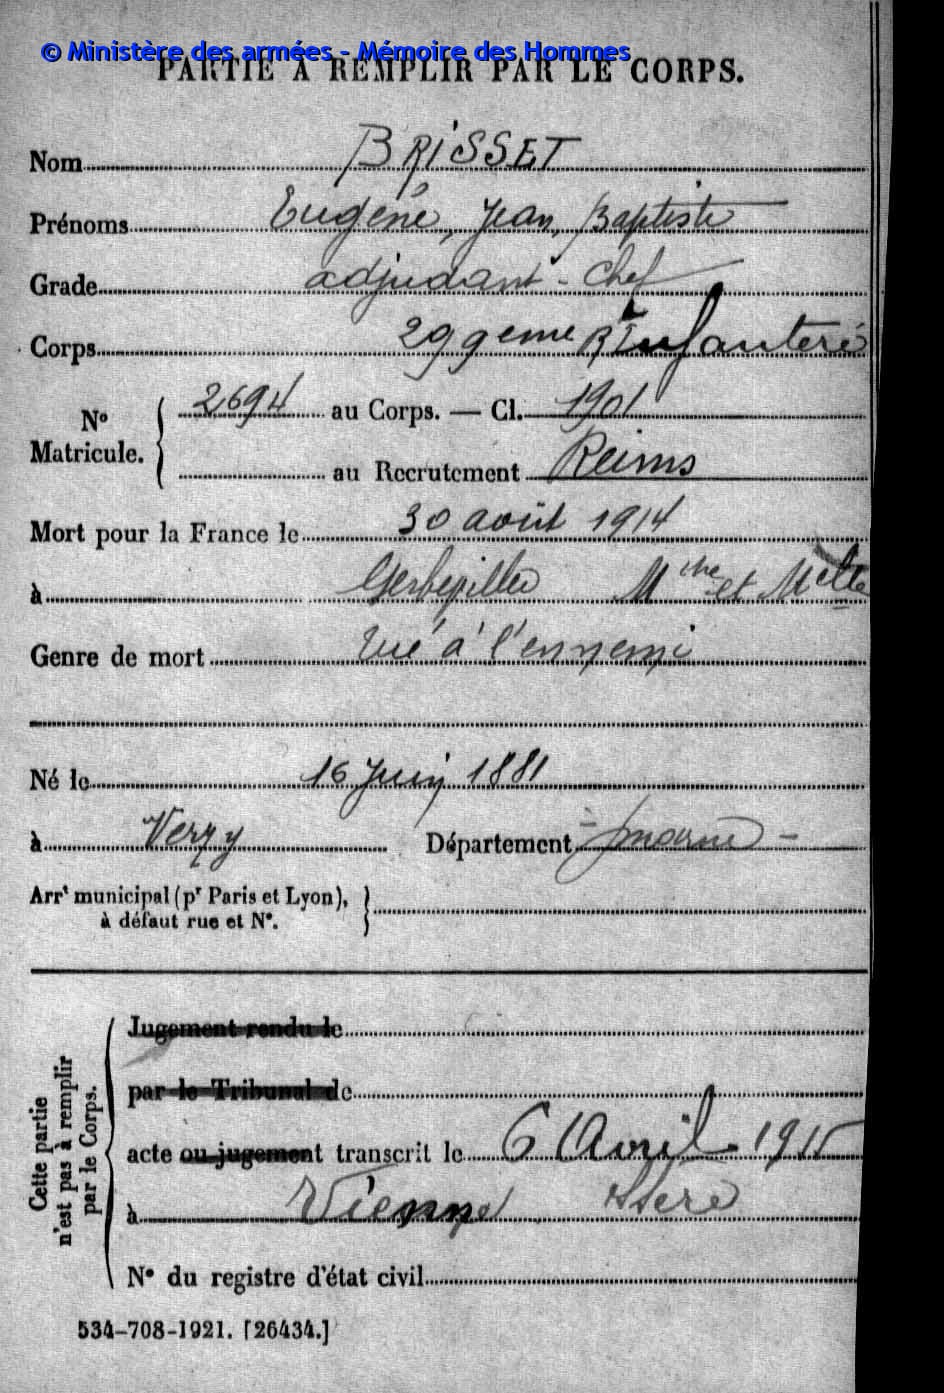 © Ministère des armées - Mémoire des Hommes
PARTIE À REMPLIR PAR LE CORPS.
Nom BRISSET
Prénoms Eugène, Jean, Baptiste
Grade adjudant-chef
Corps 299eme RInfanterie
N° Matricule. { 2694 au Corps. — Cl. 1901
au Recrutement Reims
Mort pour la France le 30 août 1914
à Gerbépiller Mthe et Melle
Genre de mort tué à l'ennemi
Né le 16 Juin 1881
à Verzy Département - Marne -
Arrt municipal (pr Paris et Lyon),
à défaut rue et N°.
Cette partie n'est pas à remplir par le Corps.
Jugement rendu le
par le Tribunal de
acte ou jugement transcrit le 6 Avril 1915
à Vienne Isère
N° du registre d'état civil
534-708-1921. [26434.]